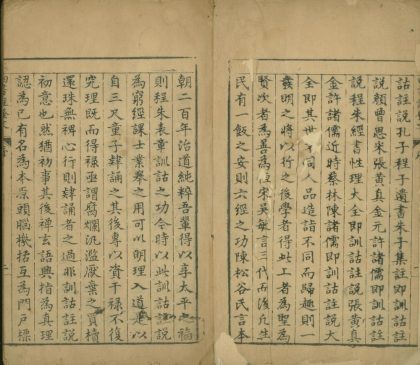 詁註說孔子程子遺書朱子集註即訓詁註
說顏曾思張黃真金元許諸儒即訓詁註
說程朱經書性理大全即訓詁註說張黃真
金許諸儒近時蔡林陳諸儒即訓詁註說大
全即其世不同人品造詣不同而歸趣則一
發明之將以行之後學者得此上者為聖為
賢次者為善為位宋吳敏言三代而後凡生
民有一飯之安則六經之功陳松谷民言本
朝二百年治道純粹吾輩得以享太平之福
則程朱表章訓詁之功令時以此訓詁註說
為窮經課士業舉之用可以明理入道是以
自三尺童子肄誦之其後專以資干祿不復
究理既而得祿亟謂腐爛沉濫厭棄之買櫝
還珠無裨心行則肄誦者之過非訓詁註說
初意也然猶初事其後禪玄語興指為真理
認為已有名為本原頭腦拈互為門戶標